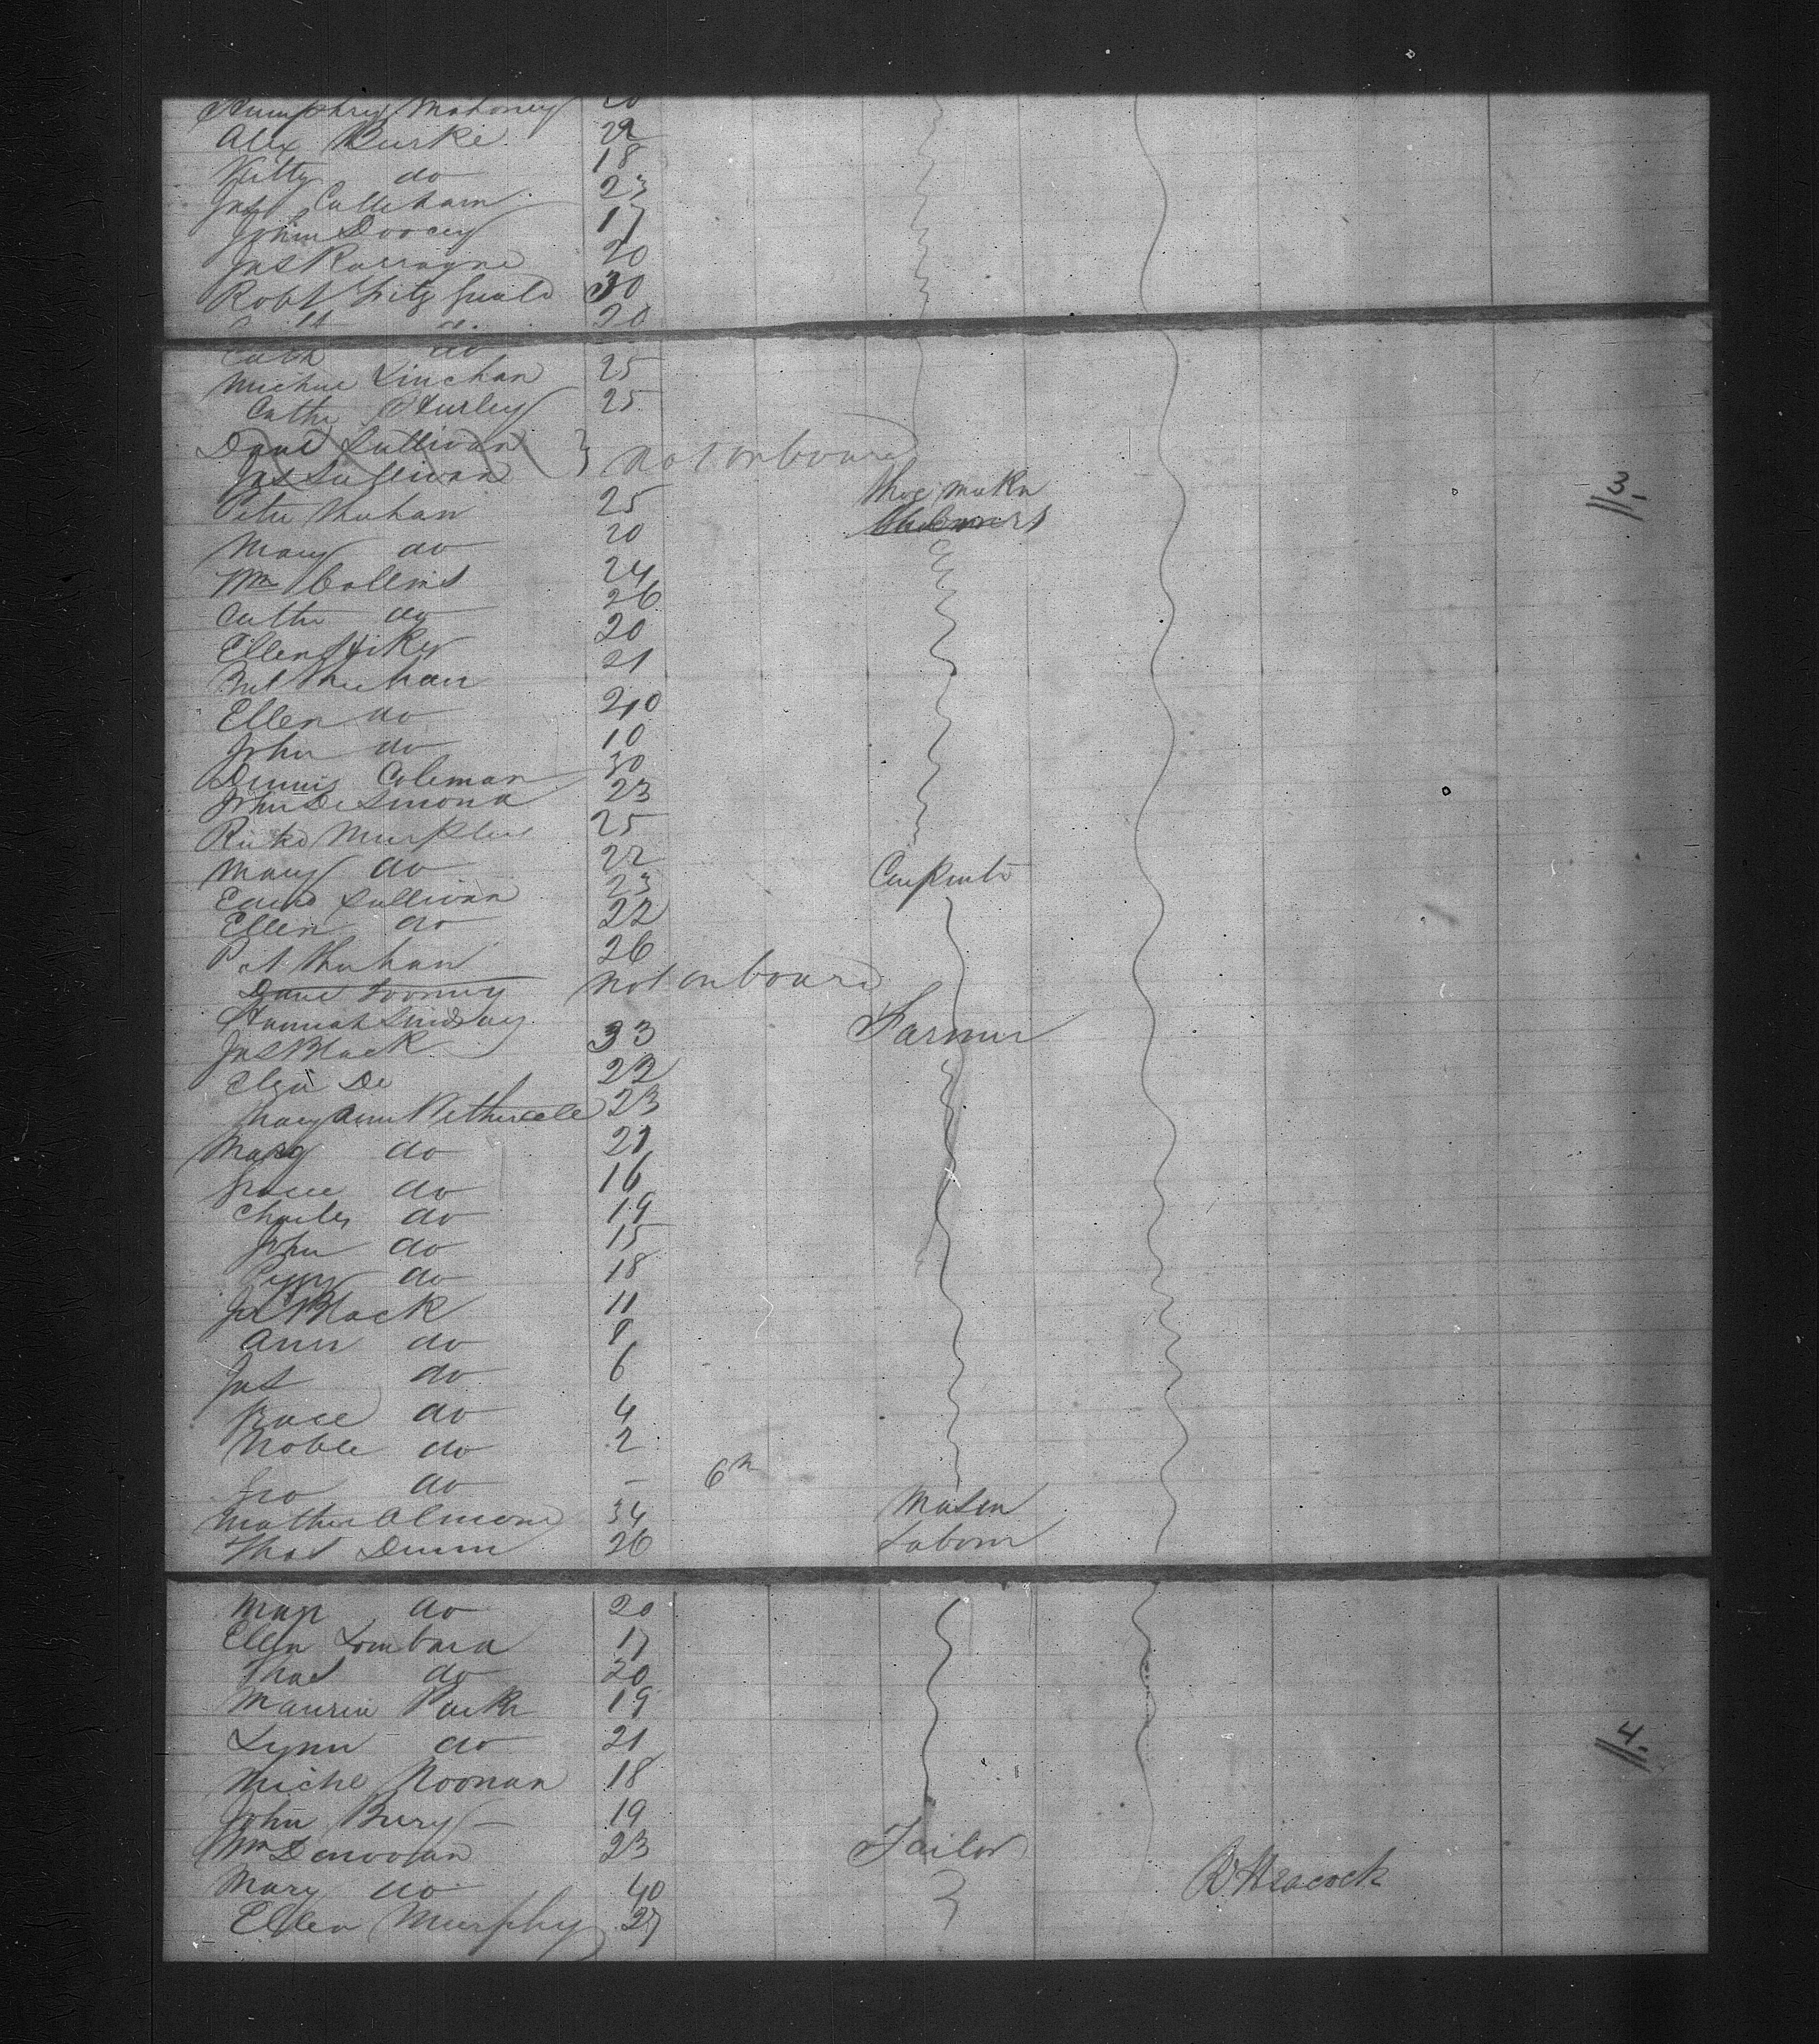 Humphrey Mahoney 20
Alex Burke 22
Kitty do 18
Jas Callehan 23
John Doocey 17
Jas 20
Robt Fitzgerald 30
20
Cath do
Michae Linehan 25
Cathe Hurley 25
Danl Sullivan } not on board
Jas Sullivan
Peter Shehan 25 Shoe maker
Mary do 20
Wm Collins 24
Cathe do 26
Ellen 20
Shehan 21
Ellen do 20
John do 10
Dennis Coleman 30
John Desmond 23
Richd Murphy 25
Mary do 22 Carpenter
Edmd Sullivan 23
Ellen do 22
Pat Shehan 26
Danl Toomey not on board
Hannah Lindsay
Jas Black 33 Farmer
Eliza Do 22
Mary Ann 23
Marg do 21
Grace do 16
Charles do 19
John do 15
do 18
Black 11
Ann do 8
Jas do 6
Grace do 4
Noble do 2
Geo do – 6 m
Mathew 34 Mason
Thos Dunn 26 Labour
3.
Mary do 20
Ellen Lombard 17
Thos do 20
Maurice 19
Lynn do 21
Michl Noonan 18
John Bury 19
Wm Donovan 23 Tailor
Mary do 40
Ellen Murphy 27
4.
Heacock